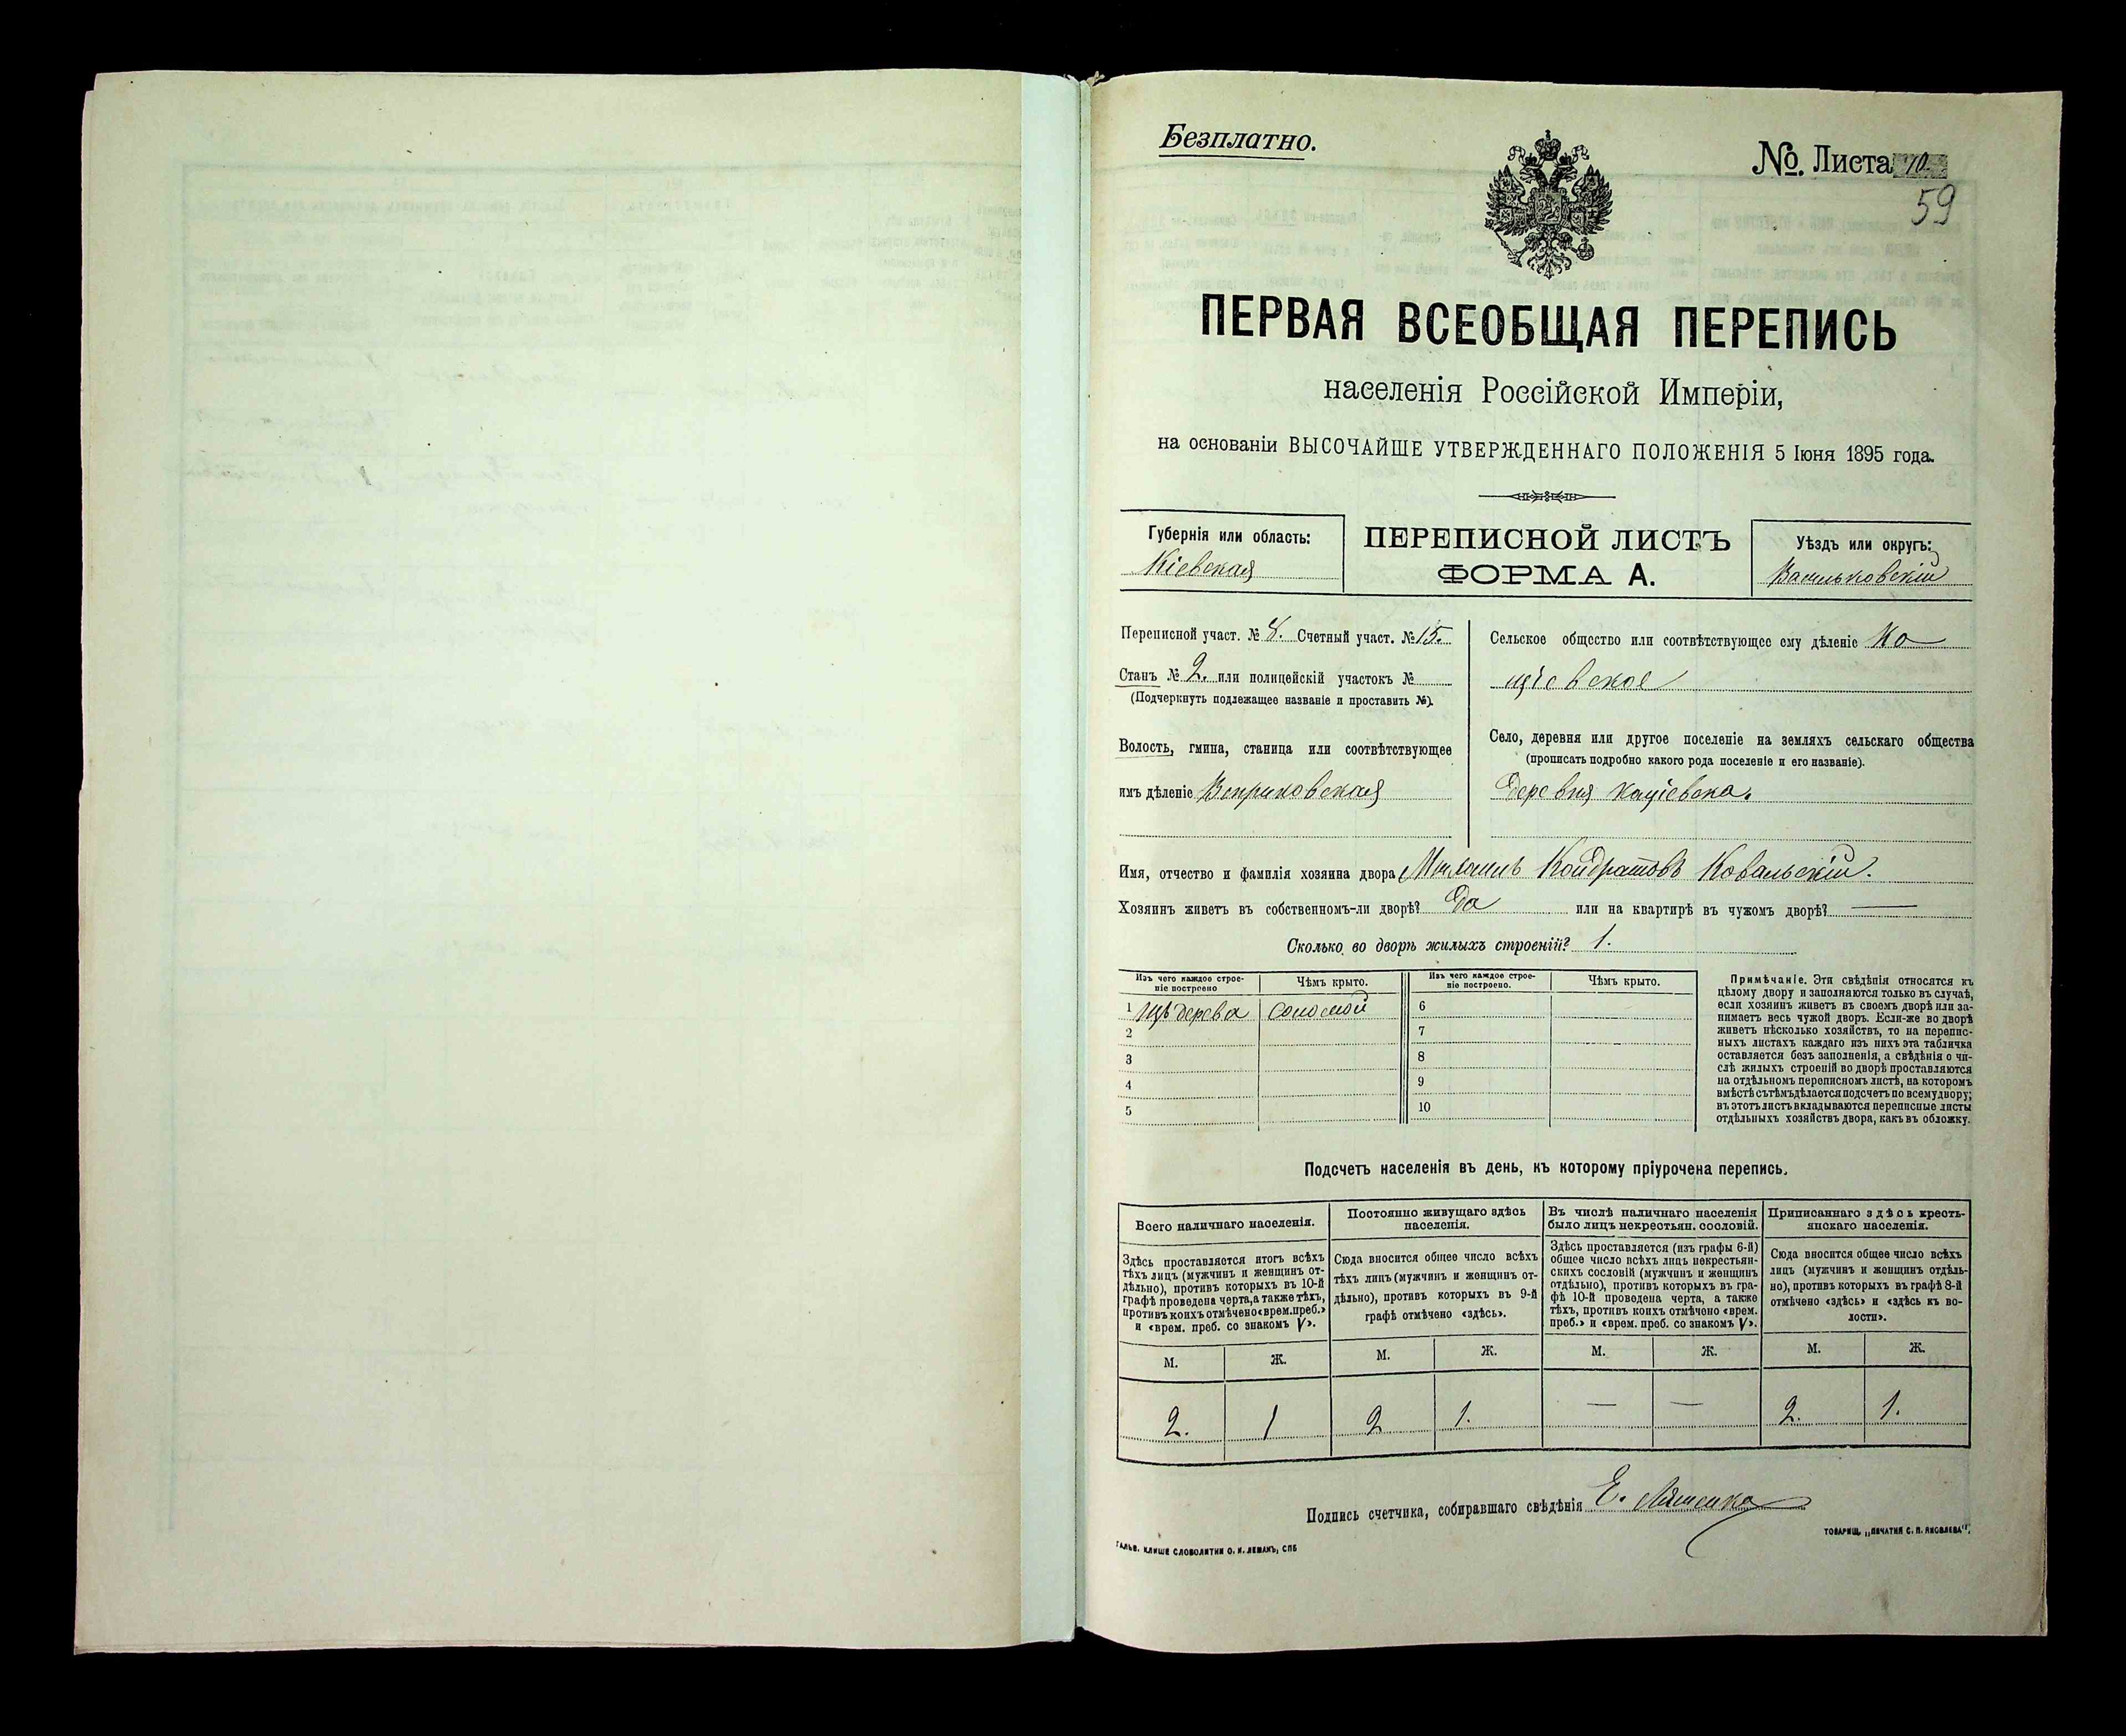 Безплатно.
№. Листа 10.
59
ПЕРВАЯ ВСЕОБЩАЯ ПЕРЕПИСЬ
населенія Россійской Имперіи,
на основаніи ВЫСОЧАЙШЕ УТВЕРЖДЕННАГО ПОЛОЖЕНІЯ 5 Іюня 1895 года.
Губернія или область:
Кіевская
ПЕРЕПИСНОЙ ЛИСТЪ
ФОРМА А.
Уѣздъ или округъ:
Васильковскій
Переписной участ. № 8. Счетный участ. № 15.
Станъ № 2. или полицейскій участокъ №
(Подчеркнуть подлежащее названіе и проставить №).
Волость, гмина, станица или соотвѣтствующее
имъ дѣленіе Веприковская
Сельское общество или соотвѣтствующее ему дѣленіе Ко
щіевское
Село, деревня или другое поселеніе на земляхъ сельскаго общества
(прописать подробно какого рода поселеніе и его названіе).
деревня Кощіевка.
Имя, отчество и фамилія хозяина двора Кондратовъ Ковальскій.
Хозяинъ живетъ въ собственномъ-ли дворѣ? Да или на квартирѣ въ чужомъ дворѣ? —
Сколько во дворѣ жилыхъ строеній? 1.
Изъ чего каждое строе-
ніе построено
Чѣмъ крыто.
Изъ чего каждое строе-
ніе построено.
Чѣмъ крыто.
1 Изъ дерева соломой
2
3
4
5
6
7
8
9
10
Примѣчаніе. Эти свѣдѣнія относятся къ
цѣлому двору и заполняются только въ случаѣ,
если хозяинъ живетъ въ своемъ дворѣ или за-
нимаетъ весь чужой дворъ. Если-же во дворѣ
живетъ нѣсколько хозяйствъ, то на перепис-
ныхъ листахъ каждаго изъ нихъ эта табличка
оставляется безъ заполненія, а свѣдѣнія о чи-
слѣ жилыхъ строеній во дворѣ проставляются
на отдѣльномъ переписномъ листѣ, на которомъ
вмѣстѣ съ тѣмъ дѣлается подсчетъ по всему двору;
въ этотъ листъ вкладываются переписные листы
отдѣльныхъ хозяйствъ двора, какъ въ обложку.
Подсчетъ населенія въ день, къ которому пріурочена перепись.
Всего наличнаго населенія.
Постоянно живущаго здѣсь
населенія.
Въ числѣ наличнаго населенія
было лицъ некрестьян. сословій.
Приписаннаго здѣсь кресть-
янскаго населенія.
Здѣсь проставляется итогъ всѣхъ
тѣхъ лицъ (мужчинъ и женщинъ от-
дѣльно), противъ которыхъ въ 10-й
графѣ проведена черта, а также тѣхъ,
противъ коихъ отмѣчено «врем. преб.»
и «врем. преб. со знакомъ V».
Сюда вносится общее число всѣхъ
тѣхъ лицъ (мужчинъ и женщинъ от-
дѣльно), противъ которыхъ въ 9-й
графѣ отмѣчено «здѣсь».
Здѣсь проставляется (изъ графы 6-й)
общее число всѣхъ лицъ некрестьян-
скихъ сословій (мужчинъ и женщинъ
отдѣльно), противъ которыхъ въ гра-
фѣ 10-й проведена черта, а также
тѣхъ, противъ коихъ отмѣчено «врем.
преб.» и «врем. преб. со знакомъ V».
Сюда вносится общее число всѣхъ
лицъ (мужчинъ и женщинъ отдѣль-
но), противъ которыхъ въ графѣ 8-й
отмѣчено «здѣсь» и «здѣсь къ во-
лости».
М. Ж. М. Ж. М. Ж. М. Ж.
2. 1 2 1. — — 2. 1.
Подпись счетчика, собиравшаго свѣдѣнія Е. Ляшенко
ГАЛЬВ. КЛИШЕ СЛОВОЛИТНИ О. И. ЛЕМАНЪ, СПБ
ТОВАРИЩ. „ПЕЧАТНЯ С. П. ЯКОВЛЕВА".